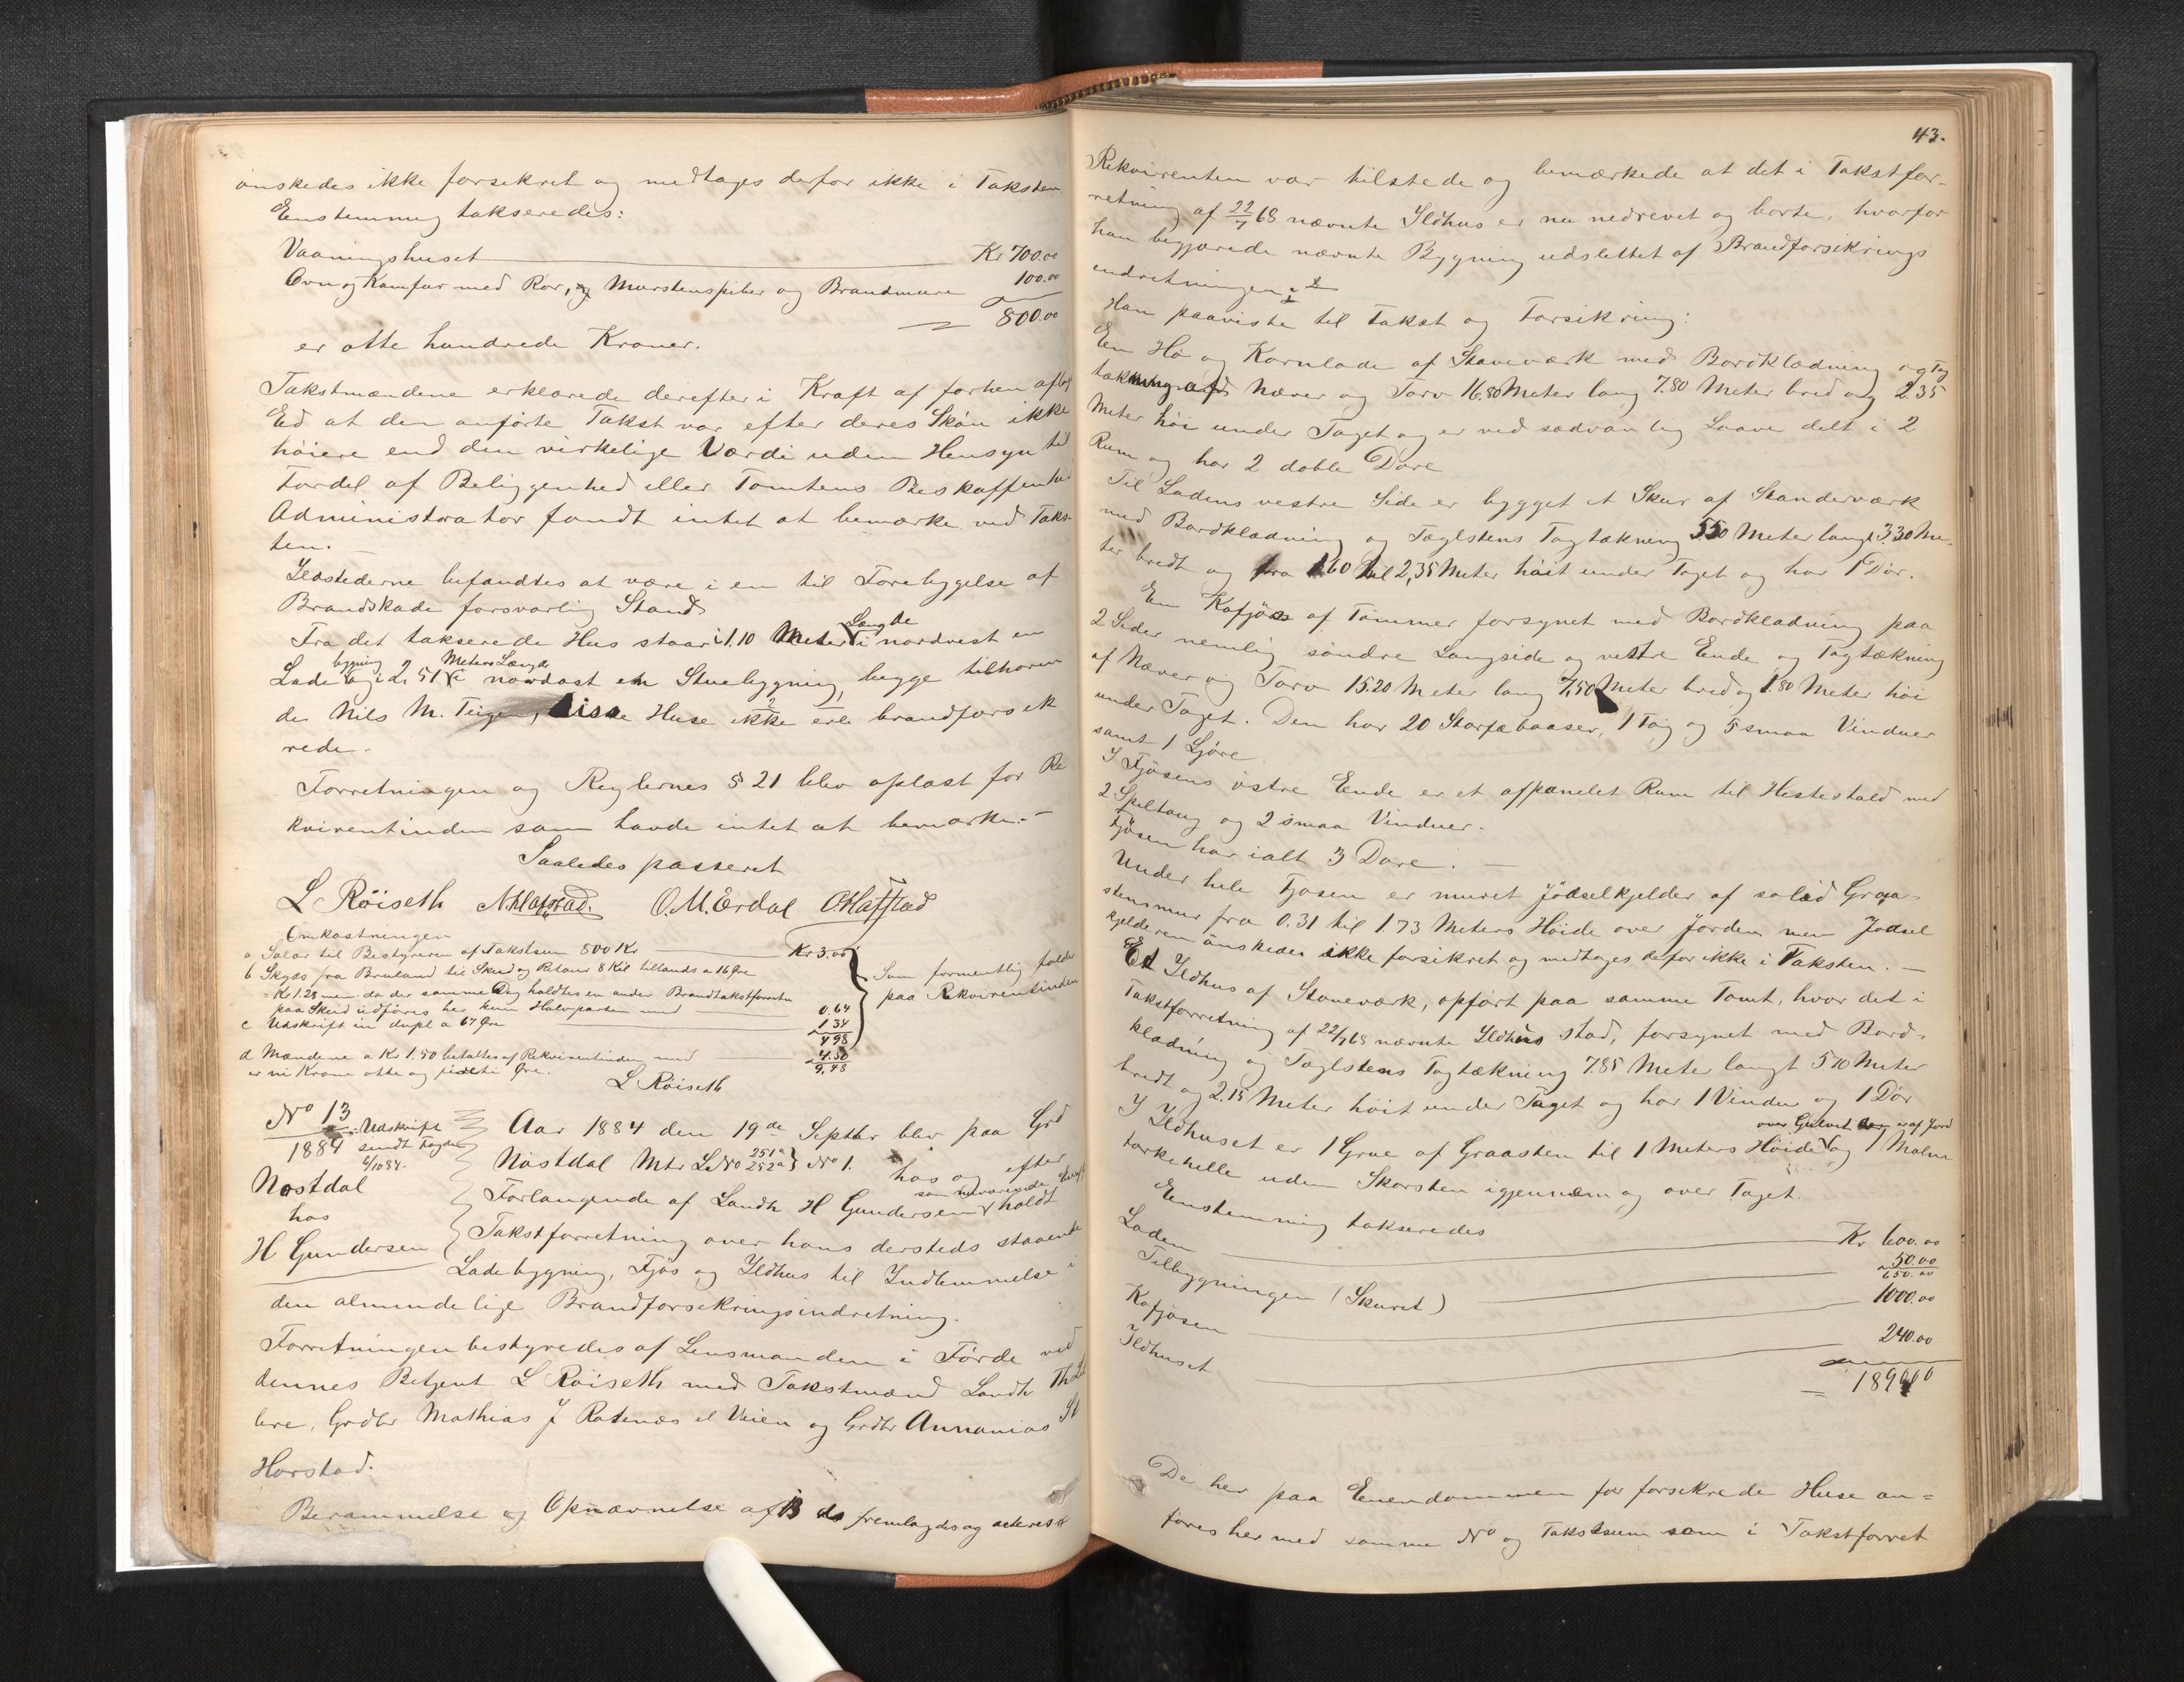 önskedes ikke forsikret og medtages derfor ikke i Taksten
Eenstemmig takseredes:
Vaaningshuset Kr 700.00
Ovn og Komfur med Rør, og Murstenspiber og Brandmure 100.00
= 800.00
er otte hundrede Kroner.
Takstmændene erklærede derefter i Kraft af forhen aflagt
Ed at den anførte Takst var efter deres Skjøn ikke
høiere end den virkelige Værdi uden Hensyn til
Fordel af Beliggenhed eller Tomtens Beskaffenhed
Administrator fandt intet at bemærke ved Taks-
ten.
Ildstederne befandtes at være i en til Forebyggelse af
Brandskade forsvarlig Stand
Fra det takserede Hus staar i 1.10 Meters Længde i nordvest en
Ladebygning og i 2,51 Meters Længde i nordøst en Stuebygning, begge tilhøren
de Nils M. Teigen, disse Huse ikke ere brandforsik
rede.
Forretningen og Reglernes § 21 blev oplæst for Re
kvirentinden som havde intet at bemærke. -
Saaledes passeret
L Röiseth N. Hafstad. O. M. Erdal O Hafstad
Omkostningen
a Salær til Bestyreren af Takstsum 800 Kr Kr 3.00
b Skyds fra Bruland til Skeid og Retour 8 Kil tillands a 16 Øre
= Kr 1.28 men da der samme Dag holdtes en anden Brandtakstforretn
paa Skeid udføres her kun Halvparten med 0.64
c Udskrift in dupl a 67 Øre 1 34
4 98
Som formentlig falder
paa Rekvirentinden
d Mændene a Kr 1.50 betaltes af Rekvirentinden med 4.50
9,48
er ni Krone otte og firti Øre.
L Röiseth
No 13
1884
Udskrift
sendt Fogden
6/10 84.
Nøstdal
hos
H Gundersen
Aar 1884 den 19de Septbr blev paa Grd
Nøstdal Mtr L No 251a 252a No 1. hos og efter
Forlangende af Landh H Gundersen som nærværende holdt
Takstforretning over hans dersteds staaende
Ladebygning, Fjøs og Ildhus til Indlemmelse i
den almindelige Brandforsikringsindretning.
Forretningen bestyredes af Lensmanden i Førde ved
dennes Betjent L Röiseth med Takstmænd Landh Th
bre, Grdbr Mathias J Rotenæs el Veien og Grdbr Annanias
Horstad.
Berammelse og Opnævnelse af 13 ds fremlagdes og acteres
43.
Rekvirenten var tilstede og bemærkede at det i Takstfor-
retning af 22/7 68 nævnte Ildhus er nu nedrevet og borte, hvorfor
han begjærede nævnte Bygning udslettet af Brandforsikrings
indretningen.
Han paaviste til Takst og Forsikring:
En Hø og Kornlade af Staveværk med Bordklædning og Tag
tækning af Næver og Torv 16,80 Meter lang 7.80 Meter bred og 2.35
Meter høi under Taget og er ved sædvanlig Laave delt i 2
Rum og har 2 doble Døre
Til Ladens vestre Side er bygget et Skur af Standerværk
med Bordklædning og Taglstens Tagtækning 5.50 Meter langt 3.30 Me-
ter bredt og fra 1.60 til 2,35 Meter høit under Taget og har 1 Dør.
En Kofjøs af Tømmer forsynet med Bordklædning paa
2 Sider nemlig søndre Langside og vestre Ende og Tagtækning
af Næver og Torv 15.20 Meter lang 7,50 Meter bred og 1.80 Meter høi
under Taget. Den har 20 Storfæbaaser, 1 Tog og 5 smaa Vinduer
samt 1 Ljøre
I Fjøsens østre Ende er et afpanelet Rum til Hestestald med
2 Spiltoug og 2 smaa Vinduer.
Fjøsen har ialt 3 Døre. -
Under hele Fjøsen er muret Jødselkjelder af solid Graa-
stensmur fra 0.31 til 1.73 Meters Høide over Jorden men Jødsel
kjelderen önskedes ikke forsikret og medtages derfor ikke i Taksten. -
Et Ildhus af Staveværk, opført paa samme Tomt, hvor det i
Takstforretning af 22/7 68 nævnte Ildhus stod, forsynet med Bord-
klædning og Taglstens Tagtækning 7.85 Meter langt 5.70 Meter
bredt og 2.15 Meter høit under Taget og har 1 Vindu og 1 Dør
I Ildhuset er 1 Grue af Graasten til 1 Meters Høide over Gulvet er af Jord og 1 Malm
tørkehelle uden Skorsten igjennem og over Taget.
Eenstemmig takseredes
Laden Kr 600.00
Tilbygningen (Skuret) 50.00
650.00
Kofjøsen 1000.00
Ildhuset 240.00
= 1890.00
De her paa Eiendommen før forsikrede Huse an=
føres her med samme No og Takstsum som i Takstforret